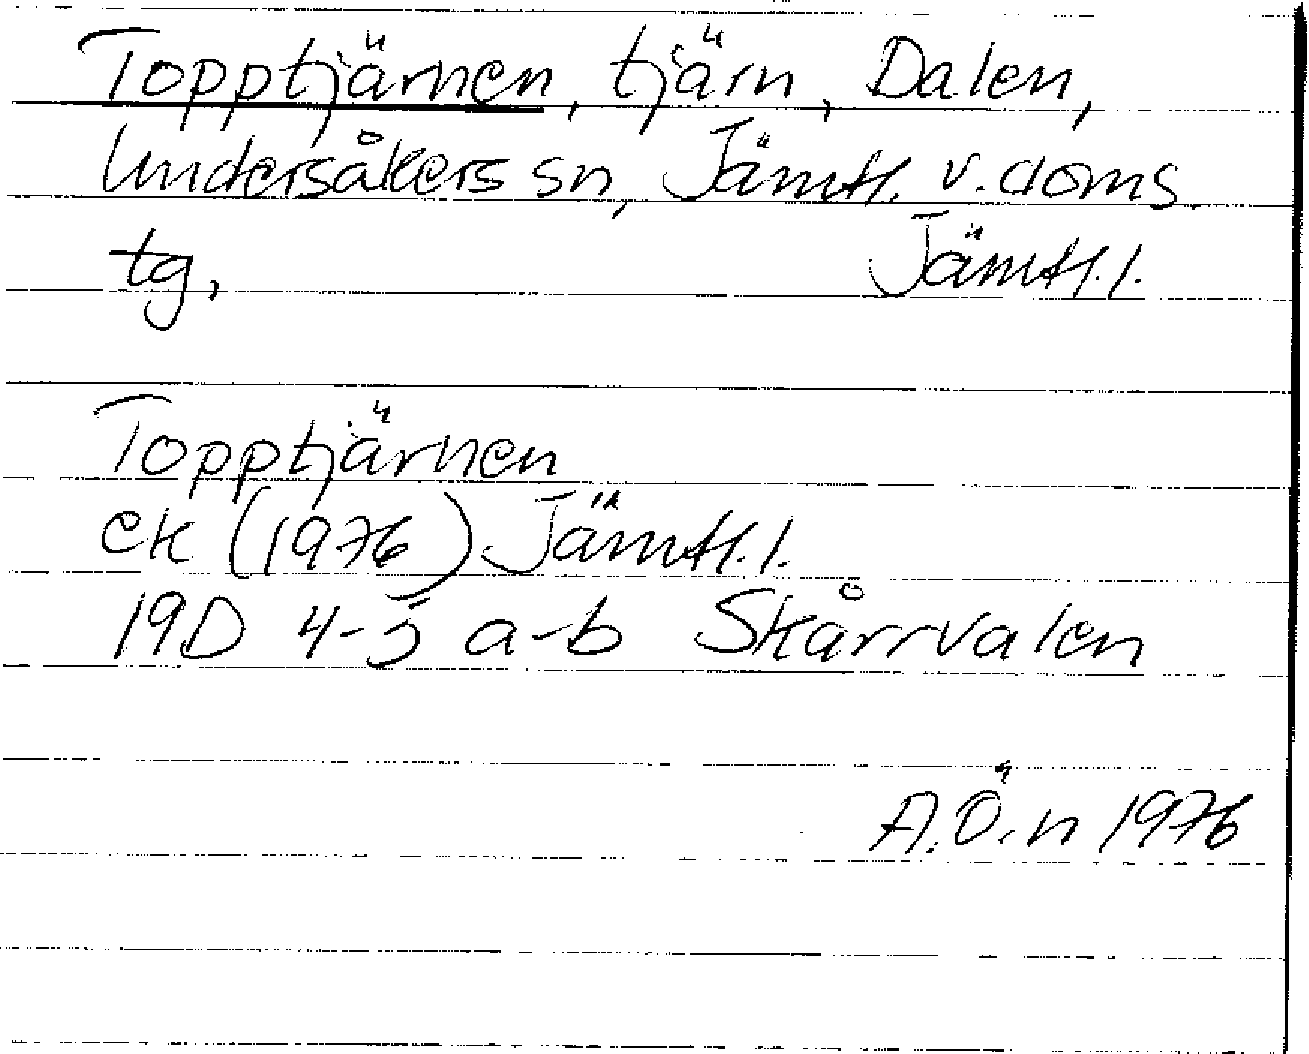 Topptjärnen, tjärn, Dalen,
Undersåkers sn, Jämtl. v. doms.
tg, Jämtl. l.
Topptjärnen
ek (1976) Jämtl. l.
19D 4-5 a-b Skårrvalen
A.Ö.n 1976